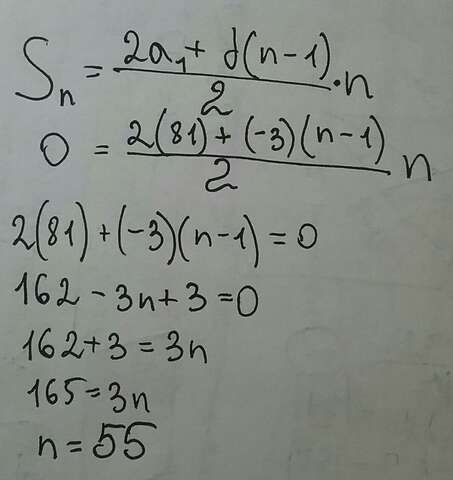 Sₙ = (2a₁ + d(n-1))/2 · n
0 = (2(81) + (-3)(n-1))/2 n
2(81) + (-3)(n-1) = 0
162 - 3n + 3 = 0
162 + 3 = 3n
165 = 3n
n = 55